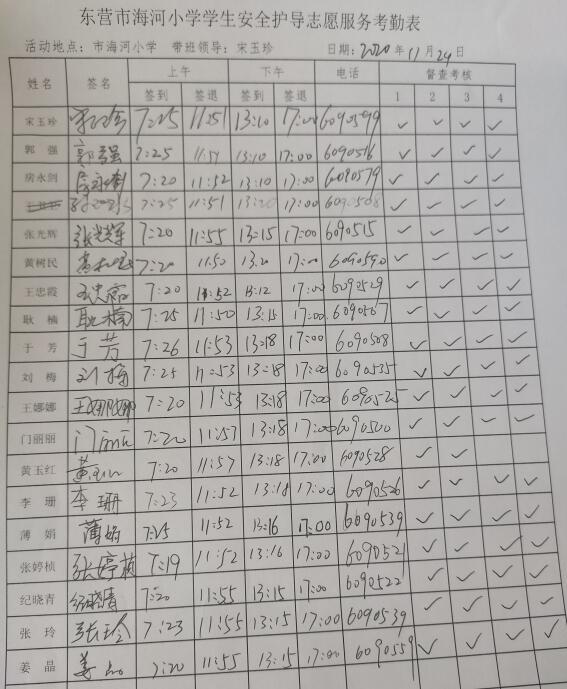 东营市海河小学学生安全护导志愿服务考勤表
活动地点：市海河小学 带班领导：宋玉珍 日期：2020年11月24日
姓名 签名 上午 下午 电话 督查考核
签到 签退 签到 签退 1 2 3 4
宋玉珍 7:25 11:51 13:10 17:00 6090599 ✓ ✓ ✓ ✓
郭强 郭强 7:25 11:51 13:10 17:00 6090516 ✓ ✓ ✓ ✓
房永剑 房永剑 7:20 11:52 13:10 17:00 6090579 ✓ ✓ ✓ ✓
7:25 11:51 13:20 17:00 6090508 ✓ ✓ ✓ ✓
张光辉 张光辉 7:20 11:55 13:15 17:00 6090515 ✓ ✓ ✓ ✓
黄树民 7:20 11:50 13:20 17:00 6090590 ✓ ✓ ✓ ✓
王忠霞 王忠霞 7:20 11:52 13:12 17:00 6090529 ✓ ✓ ✓ ✓
耿楠 耿楠 7:25 11:50 13:15 17:00 6090567 ✓ ✓ ✓ ✓
于芳 于芳 7:26 11:53 13:18 17:00 6090508 ✓ ✓ ✓ ✓
刘梅 刘梅 7:25 11:53 13:18 17:00 6090535 ✓ ✓ ✓ ✓
王娜娜 王娜娜 7:20 11:53 13:18 17:00 6090525 ✓ ✓ ✓ ✓
门丽丽 门丽丽 7:20 11:57 13:18 17:00 6090500 ✓ ✓ ✓ ✓
黄玉红 黄玉红 7:20 11:57 13:18 17:00 6090528 ✓ ✓
李珊 李珊 7:23 11:52 13:18 17:00 6090526 ✓ ✓ ✓ ✓
薄娟 薄娟 7:25 11:52 13:16 17:00 6090539 ✓ ✓ ✓ ✓
张婷桢 张婷桢 7:19 11:52 13:16 17:00 6090521 ✓ ✓ ✓ ✓
纪晓青 纪晓青 7:20 11:55 13:15 17:00 6090522 ✓ ✓ ✓ ✓
张玲 张玲 7:23 11:55 13:15 17:00 6090539 ✓ ✓ ✓ ✓
姜晶 姜晶 7:20 11:55 13:15 17:00 6090559 ✓ ✓ ✓ ✓